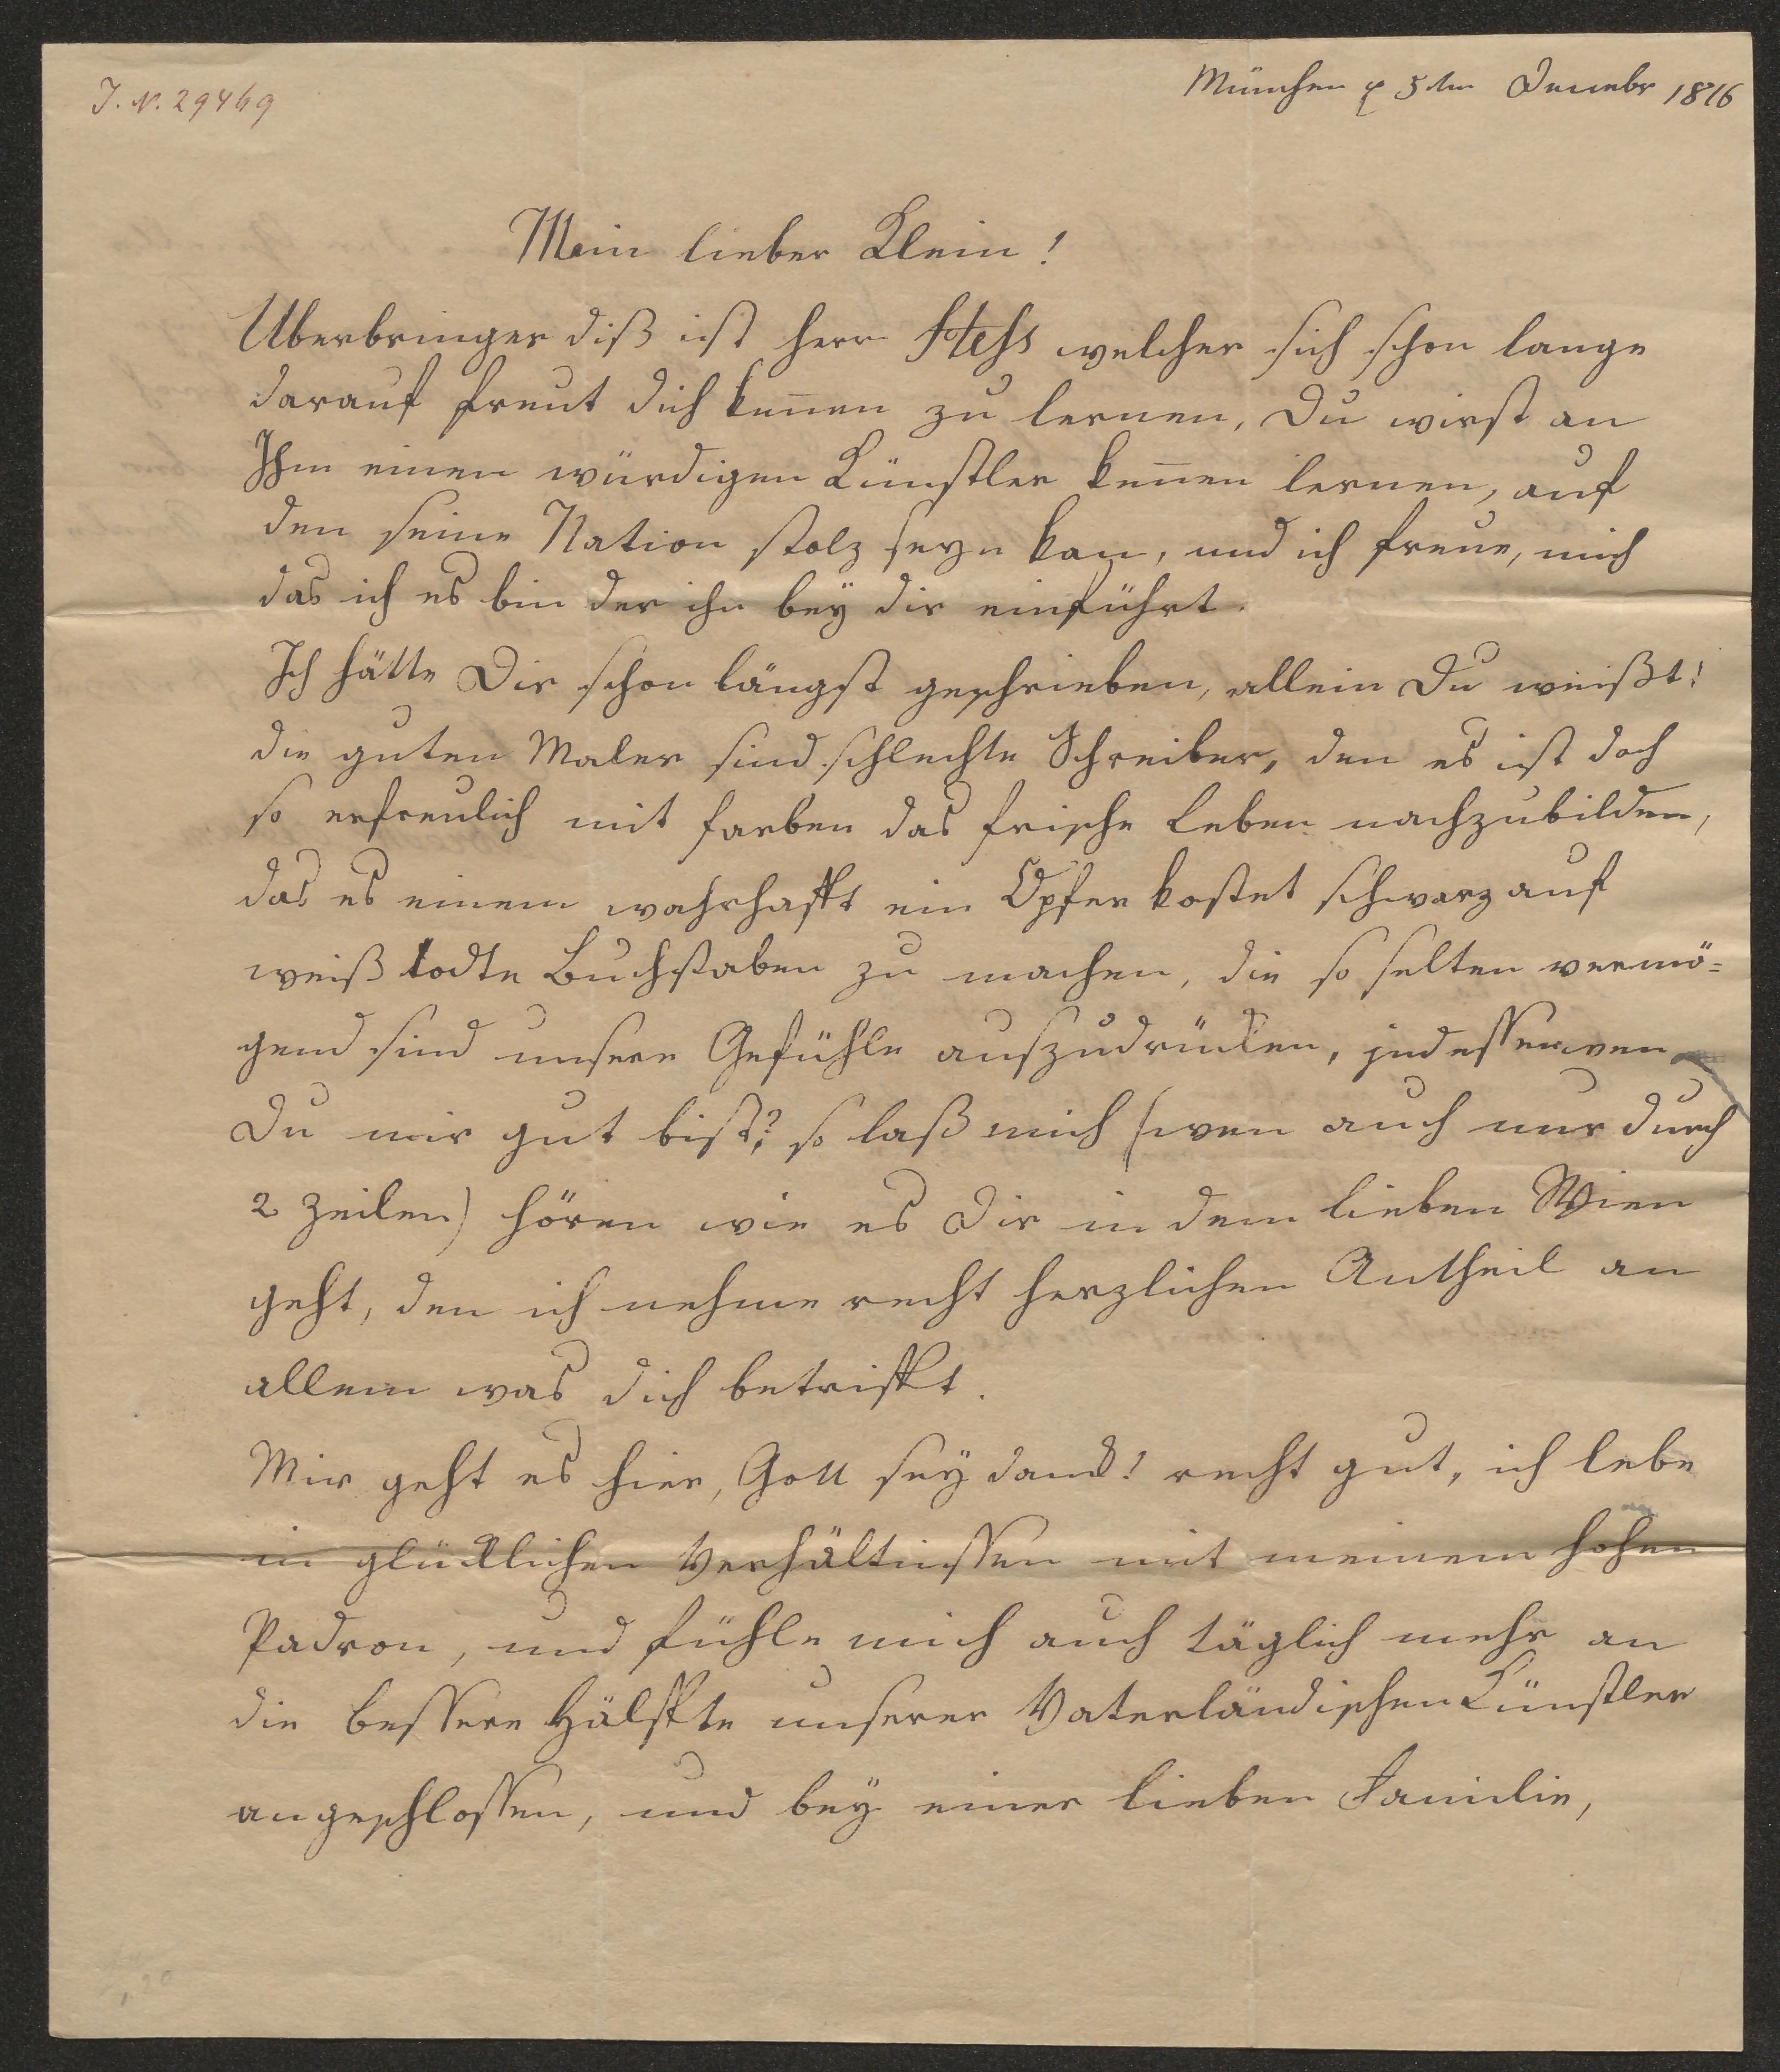 J. N. 29469
München d 5ten Decebr 1816
Mein lieber Klein!
Uberbringer diß ist Herr Hess welcher sich schon lange
darauf freut dich keñen zu lernen, Du wirst an
Ihm einen würdigen Künstler keñen lernen, auf
den seine Nation stolz seyn kan, und ich freue, mich
das ich es bin der ihn beÿ dir einführt.
Ich hätte Dir schon längst geschrieben, allein Du weißt!
die guten Maler sind schlechte Schreiber, den es ist doch
so erfreulich mit Farben das frische Leben nachzubilden,
das es einem wahrhafft ein Opfer kostet schwarz auf
weiß todte Buchstaben zu machen, die so selten vermö=
gend sind unsere Gefühle auszudrücken, indessen wen
Du mir gut bist? so laß mich (wen auch nur durch
2 Zeilen) hören wie es Dir in dem lieben Wien
geht, den ich nehme recht herzlichen Antheil an
allem was dich betrifft.
Mir geht es hier, Gott seÿ dank! recht gut, ich lebe
in glücklichen Verhältnissen mit meinem hohen
Padron, und fühle mich auch täglich mehr an
die bessere Hälffte unserer Vaterländischen Künstler
angeschlossen, und beÿ einer lieben Familie,